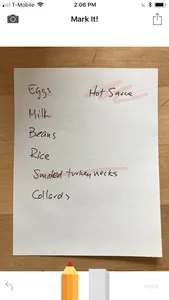 T-Mobile 2:06 PM
Mark It!
Eggs Hot Sauce
Milk
Beans
Rice
Smoked turkey necks
Collards